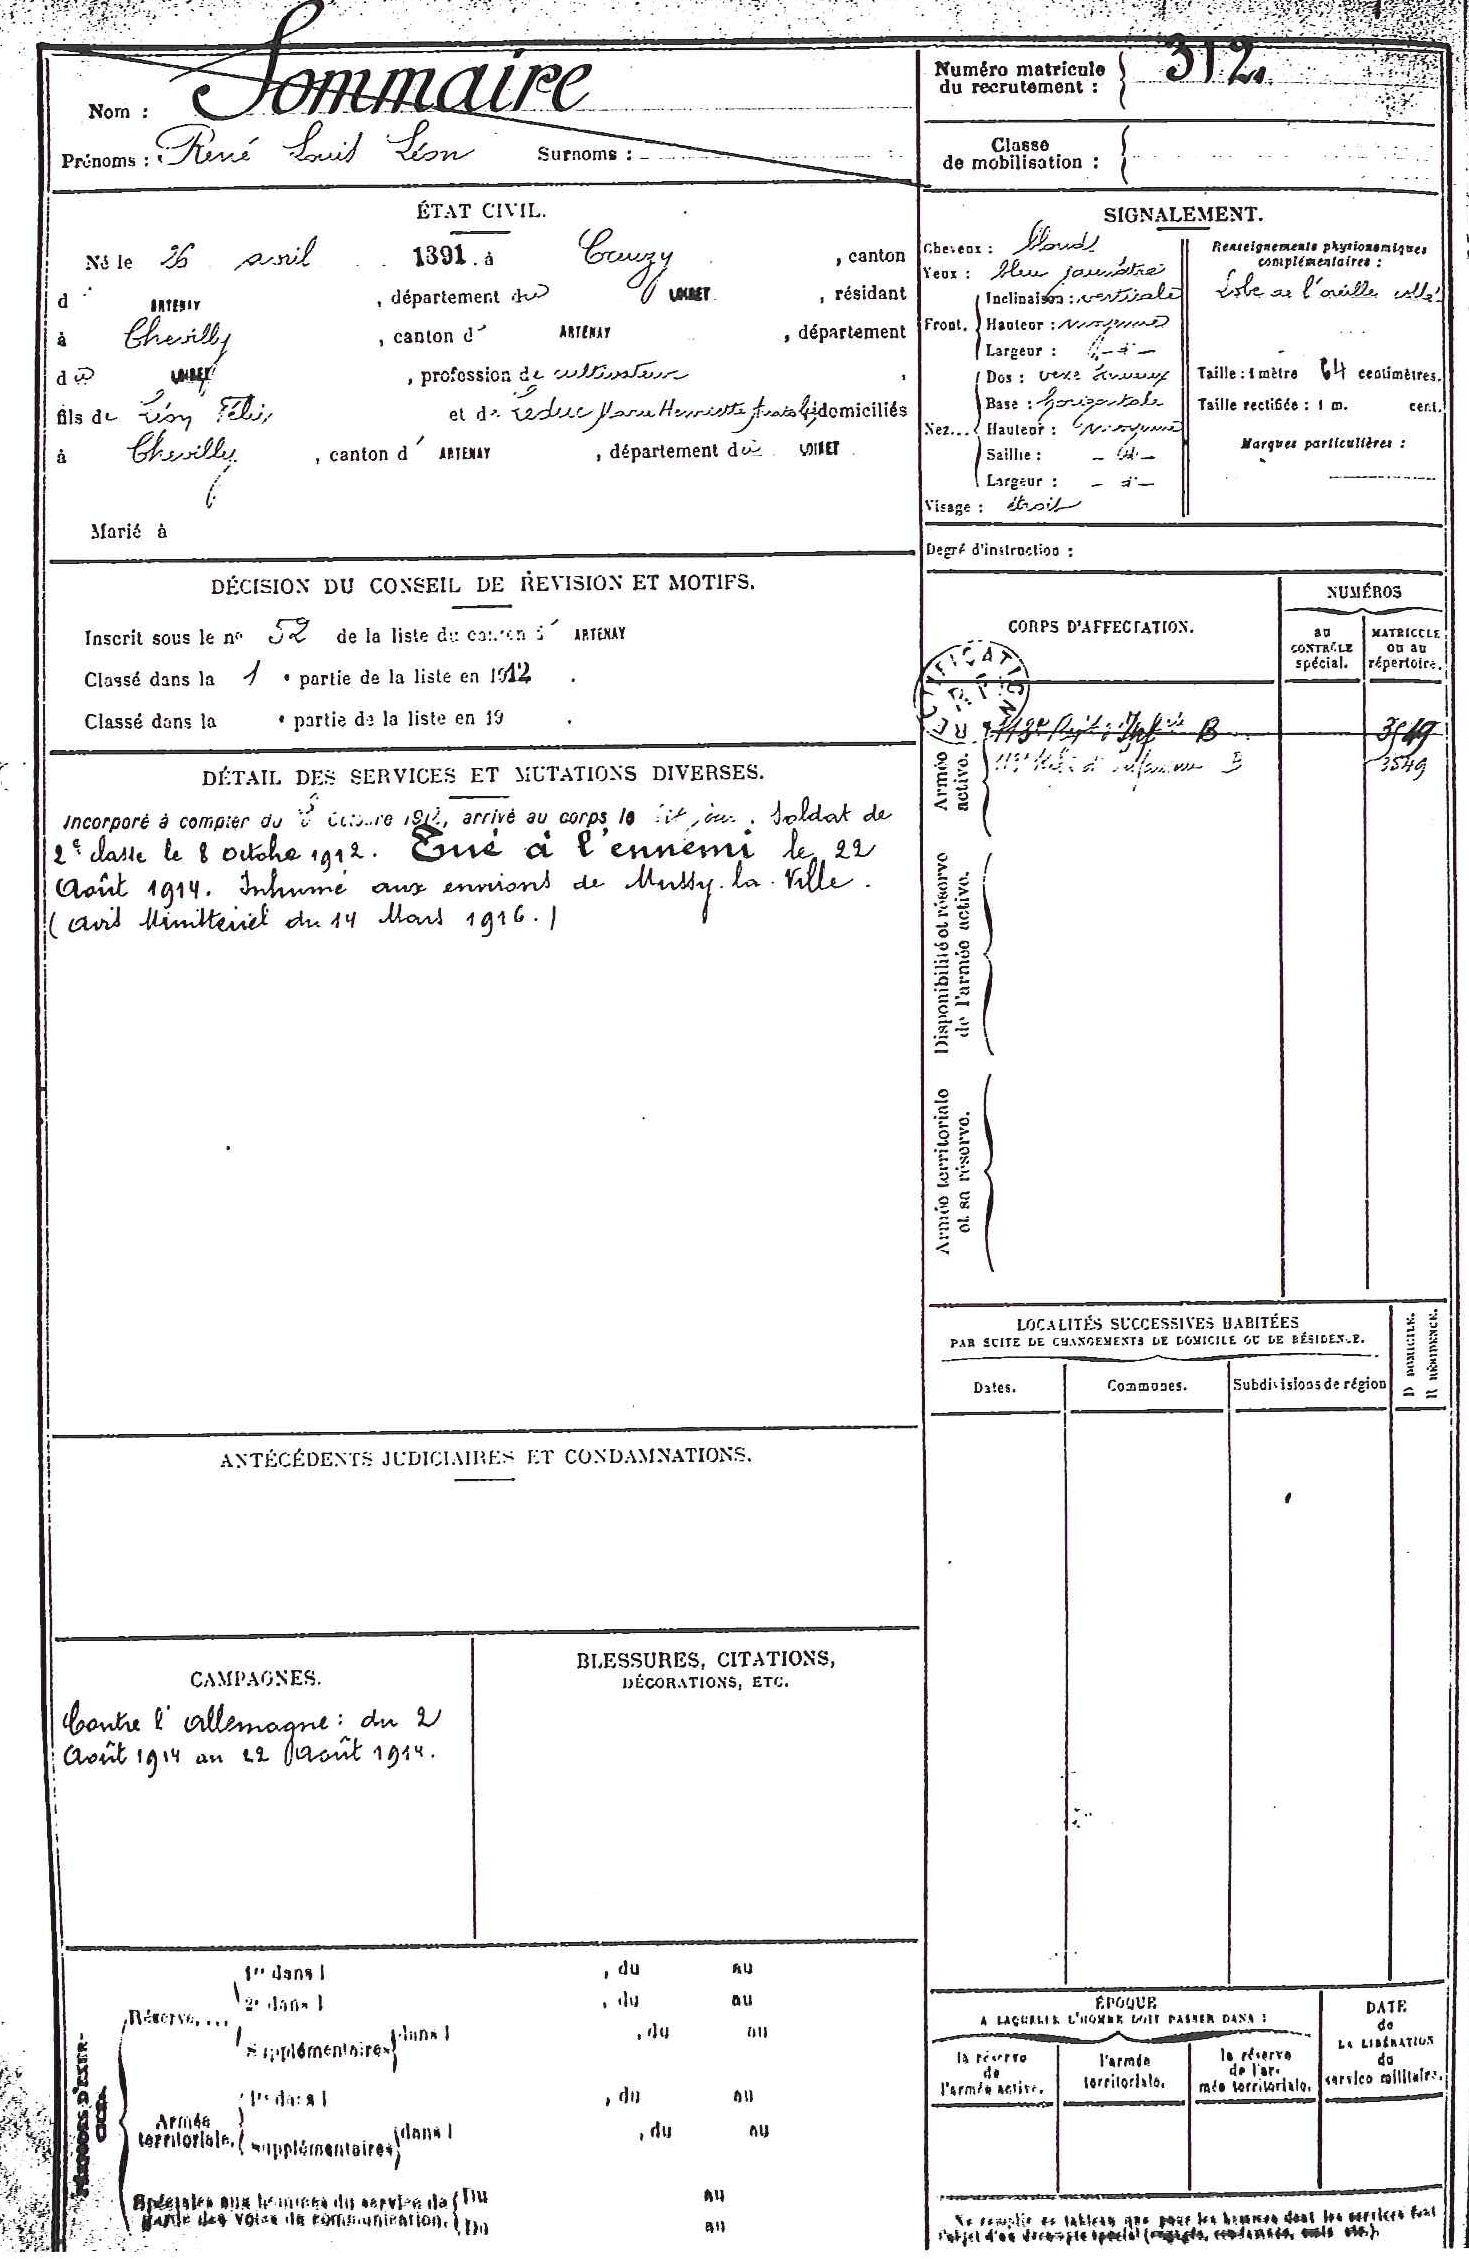 Nom : Sommaire
Prénoms : René Louis Léon Surnoms :
Numéro matricule du recrutement : 312
Classe de mobilisation :
ÉTAT CIVIL.
Né le 26 avril 1891 à , canton
d ARTENAY , département du LOIRET , résidant
à Chevilly , canton d' ARTENAY , département
du LOIRET , profession de cultivateur ,
fils de Léon Félix et de Leduc Marie Henriette domiciliés
à Chevilly , canton d' ARTENAY , département du LOIRET
Marié à
SIGNALEMENT.
Cheveux : blonds
Yeux : bleu jaunâtre
Front.
Inclinaison : verticale
Hauteur : moyenne
Largeur :
Nez...
Dos :
Base : horizontale
Hauteur : moyenne
Saillie : - d° -
Largeur : - d° -
Visage : étroit
Renseignements physionomiques
complémentaires :
Lobe de l'oreille collé
Taille : 1 mètre 64 centimètres.
Taille rectifiée : 1 m. cent.
Marques particulières :
Degré d'instruction :
DÉCISION DU CONSEIL DE REVISION ET MOTIFS.
Inscrit sous le n° 52 de la liste du canton d' ARTENAY
Classé dans la 1 e partie de la liste en 1912 .
Classé dans la e partie de la liste en 19 .
DÉTAIL DES SERVICES ET MUTATIONS DIVERSES.
Incorporé à compter du 8 Octobre 1912, arrivé au corps le dit jour. Soldat de
2e classe le 8 Octobre 1912. Tué à l'ennemi le 22
Août 1914. Inhumé aux environs de Mussy-la-Ville.
(Avis Ministériel du 14 Mars 1916.)
CORPS D'AFFECTATION.
NUMÉROS
AU CONTRÔLE spécial.
MATRICULE ou au répertoire.
RECTIFICATION
113e Régt d'Infie B 3549
113e Régt d'Infanterie B 3549
Armée active.
Disponibilité et réserve de l'armée active.
Armée territoriale et sa réserve.
LOCALITÉS SUCCESSIVES HABITÉES
PAR SUITE DE CHANGEMENTS DE DOMICILE OU DE RÉSIDENCE.
Dates.
Communes.
Subdivisions de région
D DOMICILE.
R RÉSIDENCE.
ANTÉCÉDENTS JUDICIAIRES ET CONDAMNATIONS.
CAMPAGNES.
Contre l'Allemagne : du 2
Août 1914 au 22 Août 1914.
BLESSURES, CITATIONS,
DÉCORATIONS, ETC.
PÉRIODES D'EXERCICE.
Réserve....
1re dans l , du au
2e dans l , du au
Supplémentaires dans l , du au
Armée territoriale.
1re dans l , du au
Supplémentaires dans l , du au
Spéciales aux hommes du service de
garde des voies de communication.
Du au
Du au
ÉPOQUE
A LAQUELLE L'HOMME DOIT PASSER DANS :
la réserve de l'armée active.
l'armée territoriale.
la réserve de l'armée territoriale.
DATE de LA LIBÉRATION du service militaire.
Ne remplir ce tableau que pour les hommes dont les services font
l'objet d'un décompte spécial (engagés, condamnés, omis etc.).